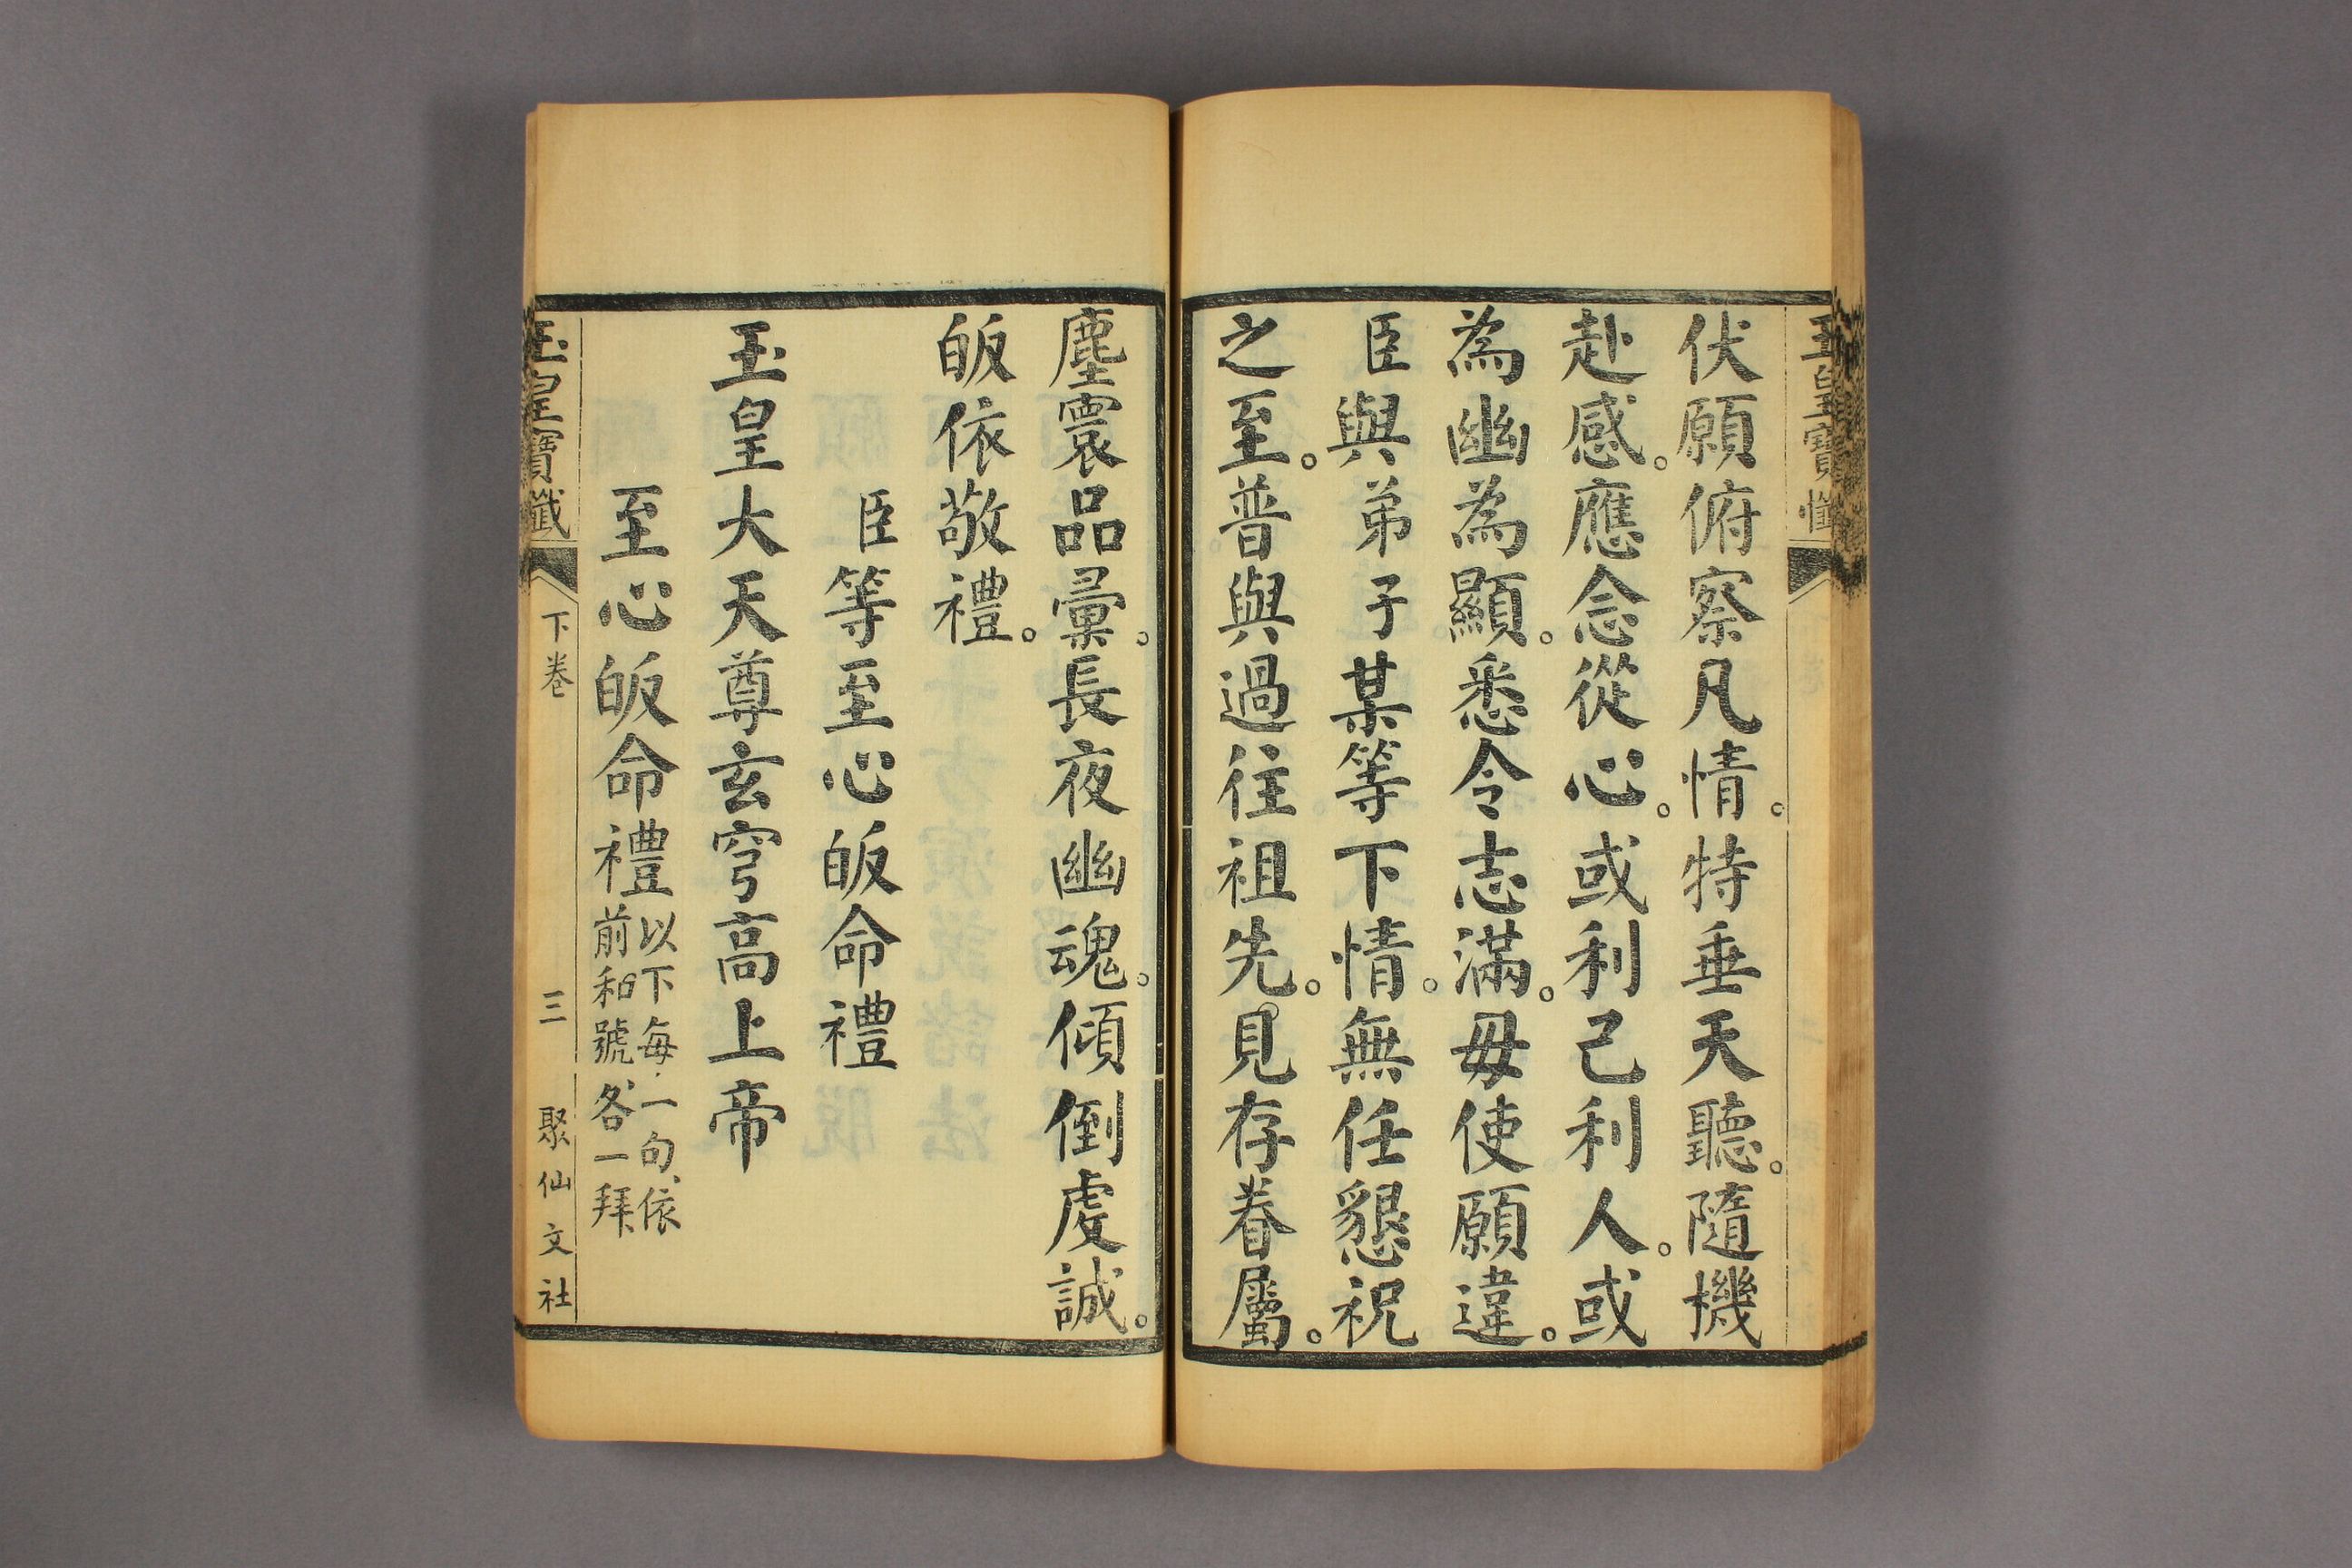 玉皇寶懺
伏願俯察凡情。特垂天聽。隨機
赴感。應念從心。或利己利人。或
為幽為顯。悉令志滿。毋使願違。
臣與弟子某等下情。無任懇祝
之至。普與過往祖先。見存眷屬。
塵寰品彙。長夜幽魂。傾倒虔誠。
皈依敬禮。
臣等至心皈命禮
玉皇大天尊玄穹高上帝
至心皈命禮以下每一句、依
前和號、各一拜、
玉皇寶懺 下卷 三 聚仙文社